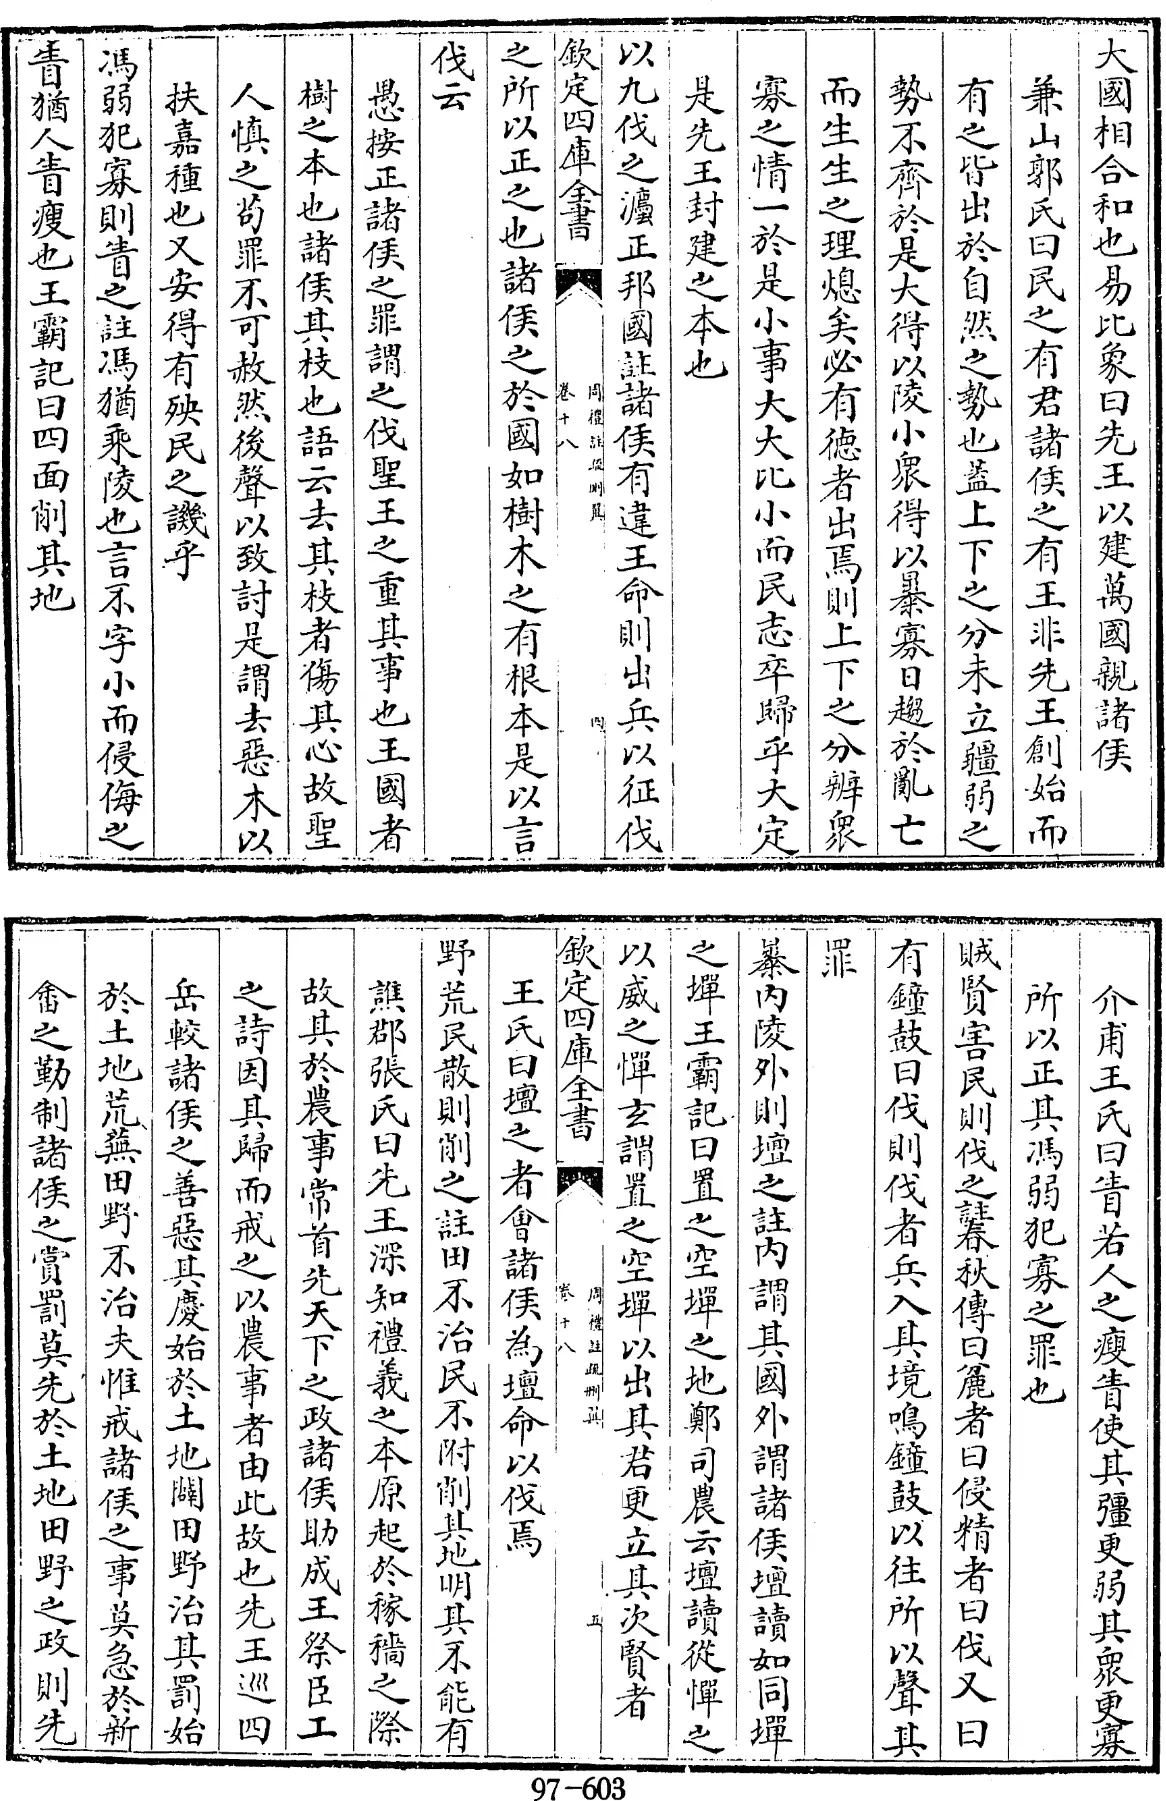 大國相合和也易比象曰先王以建萬國親諸侯
兼山郭氏曰民之有君諸侯之有王非先王創始而
有之皆出於自然之勢也蓋上下之分未立疆弱之
勢不齊於是大得以陵小衆得以暴寡日趨於亂亡
而生生之理熄矣必有徳者出焉則上下之分辨衆
寡之情一於是小事大大比小而民志卒歸乎大定
是先王封建之本也
以九伐之灋正邦國註諸侯有違王命則出兵以征伐
欽定四庫全書
周禮註疏刪翼
卷十八
四
之所以正之也諸侯之於國如樹木之有根本是以言
伐云
愚按正諸侯之罪謂之伐聖王之重其事也王國者
樹之本也諸侯其枝也語云去其枝者傷其心故聖
人慎之茍罪不可赦然後聲以致討是謂去惡木以
扶嘉種也又安得有殃民之譏乎
馮弱犯寡則眚之註馮猶乘陵也言不字小而侵侮之
眚猶人眚瘦也王霸記曰四面削其地
介甫王氏曰眚若人之瘦眚使其彊更弱其衆更寡
所以正其馮弱犯寡之罪也
賊賢害民則伐之註春秋傳曰麄者曰侵精者曰伐又曰
有鐘鼓曰伐則伐者兵入其境鳴鐘鼓以往所以聲其
罪
㬥内陵外則壇之註内謂其國外謂諸侯壇讀如同墠
之墠王霸記曰置之空墠之地鄭司農云壇讀從憚之
以威之憚玄謂置之空墠以出其君更立其次賢者
欽定四庫全書
周禮註疏刪翼
卷十八
五
王氏曰壇之者會諸侯為壇命以伐焉
野荒民散則削之註田不治民不附削其地明其不能有
譙郡張氏曰先王深知禮義之本原起於稼穡之際
故其於農事常首先天下之政諸侯助成王祭臣工
之詩因其歸而戒之以農事者由此故也先王巡四
岳較諸侯之善惡其慶始於土地闢田野治其罰始
於土地荒蕪田野不治夫惟戒諸侯之事莫急於新
畬之勤制諸侯之賞罰莫先於土地田野之政則先
97-603